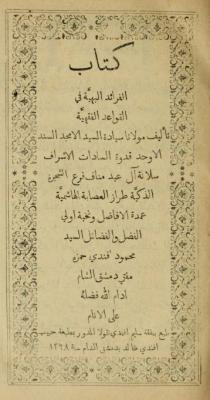 كتاب
الفرائد البهية في
القواعد الفقهية
تأليف مولانا سيادة السيد الامجد السند
الاوحد قدوة السادات الاشراف
سلالة آل عبد مناف فرع الشجرة
الزكية طراز العصابة الهاشمية
عمدة الافاضل ونخبة اولي
الفضل والفضائل السيد
محمود افندي حمزه
مفتي دمشق الشام
ادام الله فضله
على الانام
طبع بنفقة سليم افندي المدور بمطبعة حبيب
افندي خالد بدمشق الشام سنة ١٢٩٨